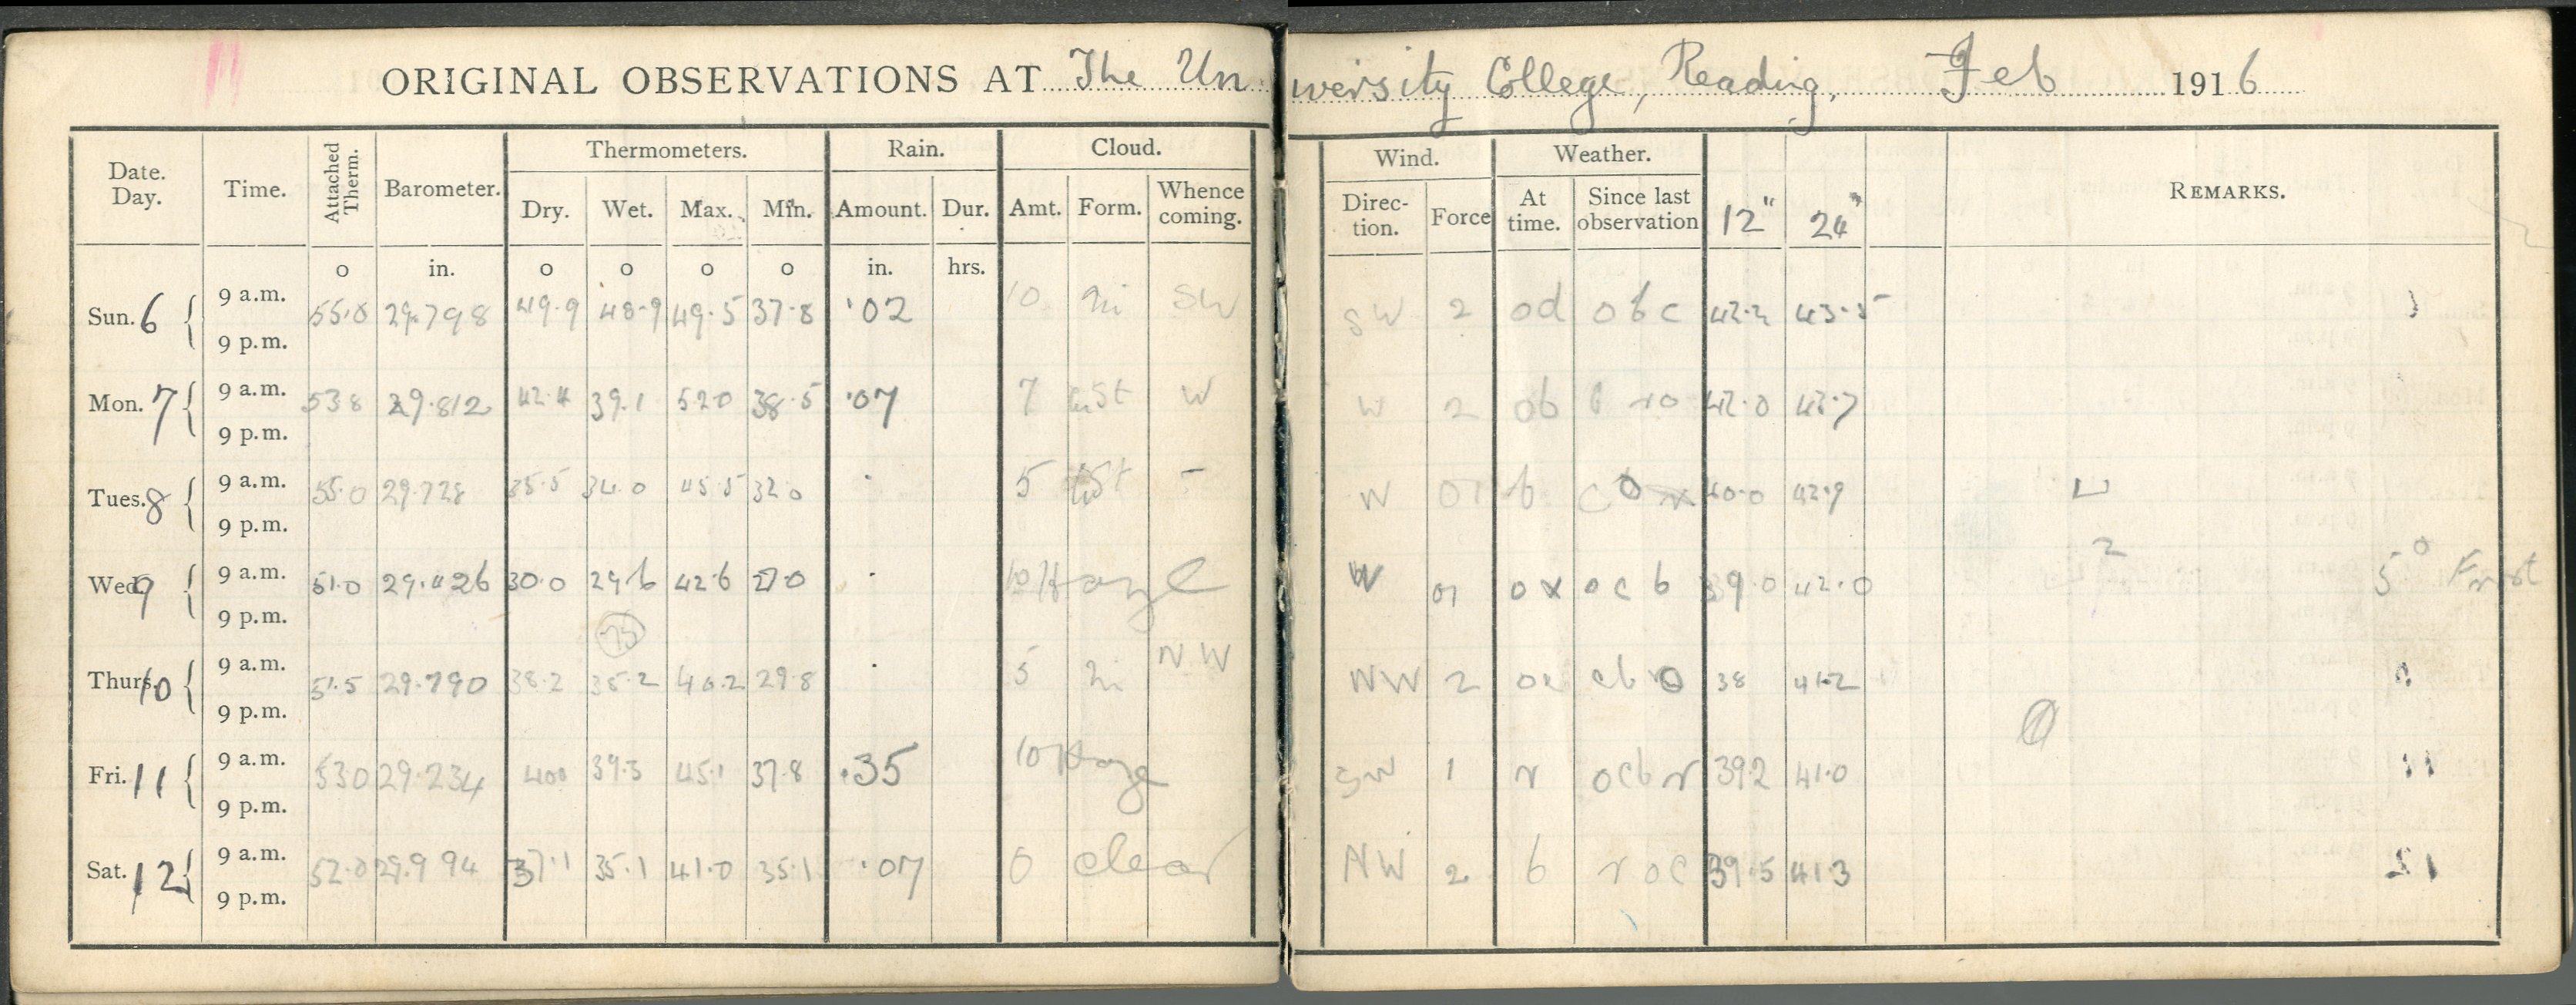 ORIGINAL OBSERVATIONS AT The University College, Reading, Feb 1916
Date. Day. Time. Attached Therm. Barometer. Thermometers. Rain. Cloud. Wind. Weather. REMARKS.
Dry. Wet. Max. Min. Amount. Dur. Amt. Form. Whence coming. Direc-tion. Force At time. Since last observation 12" 24"
o in. o o o o in. hrs.
Sun. 6 9 a.m. 55.0 29.798 49.9 48.9 49.5 37.8 .02 10 ni SW SW 2 od obc 42.2 43.5
9 p.m.
Mon. 7 9 a.m. 53 8 29.812 42.4 39.1 52 0 38.5 .07 7 W W 2 ob ro 42.0 43.7
9 p.m.
Tues. 8 9 a.m. 55.0 29.728 35.5 34.0 45.5 32.0 . 5 - W 01 b c o 40.0 42.9
9 p.m.
Wed. 9 9 a.m. 51.0 29.426 30.0 29.6 42.6 27.0 . 10 Haze W 01 ox ocb 39.0 42.0 5° Frost
9 p.m. 75
Thurs. 10 9 a.m. 51.5 29.790 38.2 35.2 40.2 29.8 . 5 ni NW NW 2 oc cb 38 41.2
9 p.m.
Fri. 11 9 a.m. 53 0 29.234 40.0 39.3 45.1 37.8 .35 10 Haze SW 1 r ocb r 39.2 41.0
9 p.m.
Sat. 12 9 a.m. 52.0 29.994 37.1 35.1 41.0 35.1 .07 0 clear NW 2 b roc 39.5 41.3
9 p.m.